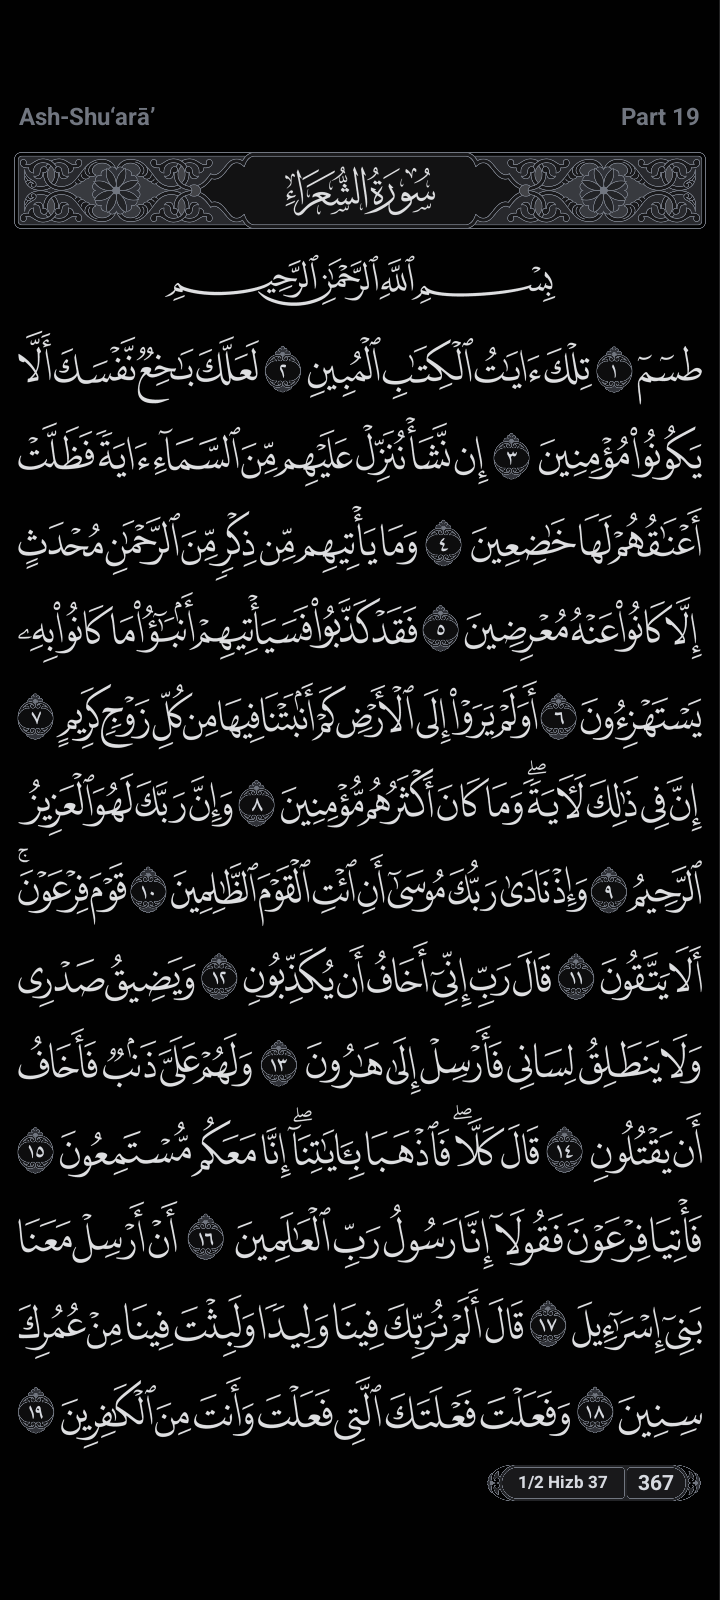 Ash-Shu‘arā’ Part 19
سُورَةُ الشُّعَرَاءِ
بِسْمِ ٱللَّهِ ٱلرَّحْمَٰنِ ٱلرَّحِيمِ
طسٓمٓ ١ تِلْكَ ءَايَٰتُ ٱلْكِتَٰبِ ٱلْمُبِينِ ٢ لَعَلَّكَ بَٰخِعٌ نَّفْسَكَ أَلَّا
يَكُونُوا۟ مُؤْمِنِينَ ٣ إِن نَّشَأْ نُنَزِّلْ عَلَيْهِم مِّنَ ٱلسَّمَآءِ ءَايَةً فَظَلَّتْ
أَعْنَٰقُهُمْ لَهَا خَٰضِعِينَ ٤ وَمَا يَأْتِيهِم مِّن ذِكْرٍ مِّنَ ٱلرَّحْمَٰنِ مُحْدَثٍ
إِلَّا كَانُوا۟ عَنْهُ مُعْرِضِينَ ٥ فَقَدْ كَذَّبُوا۟ فَسَيَأْتِيهِمْ أَنۢبَٰٓؤُا۟ مَا كَانُوا۟ بِهِۦ
يَسْتَهْزِءُونَ ٦ أَوَلَمْ يَرَوْا۟ إِلَى ٱلْأَرْضِ كَمْ أَنۢبَتْنَا فِيهَا مِن كُلِّ زَوْجٍ كَرِيمٍ ٧
إِنَّ فِى ذَٰلِكَ لَءَايَةً ۖ وَمَا كَانَ أَكْثَرُهُم مُّؤْمِنِينَ ٨ وَإِنَّ رَبَّكَ لَهُوَ ٱلْعَزِيزُ
ٱلرَّحِيمُ ٩ وَإِذْ نَادَىٰ رَبُّكَ مُوسَىٰٓ أَنِ ٱئْتِ ٱلْقَوْمَ ٱلظَّٰلِمِينَ ١٠ قَوْمَ فِرْعَوْنَ ۚ
أَلَا يَتَّقُونَ ١١ قَالَ رَبِّ إِنِّىٓ أَخَافُ أَن يُكَذِّبُونِ ١٢ وَيَضِيقُ صَدْرِى
وَلَا يَنطَلِقُ لِسَانِى فَأَرْسِلْ إِلَىٰ هَٰرُونَ ١٣ وَلَهُمْ عَلَىَّ ذَنۢبٌ فَأَخَافُ
أَن يَقْتُلُونِ ١٤ قَالَ كَلَّا ۖ فَٱذْهَبَا بِـَٔايَٰتِنَآ ۖ إِنَّا مَعَكُم مُّسْتَمِعُونَ ١٥
فَأْتِيَا فِرْعَوْنَ فَقُولَآ إِنَّا رَسُولُ رَبِّ ٱلْعَٰلَمِينَ ١٦ أَنْ أَرْسِلْ مَعَنَا
بَنِىٓ إِسْرَٰٓءِيلَ ١٧ قَالَ أَلَمْ نُرَبِّكَ فِينَا وَلِيدًا وَلَبِثْتَ فِينَا مِنْ عُمُرِكَ
سِنِينَ ١٨ وَفَعَلْتَ فَعْلَتَكَ ٱلَّتِى فَعَلْتَ وَأَنتَ مِنَ ٱلْكَٰفِرِينَ ١٩
1/2 Hizb 37 367